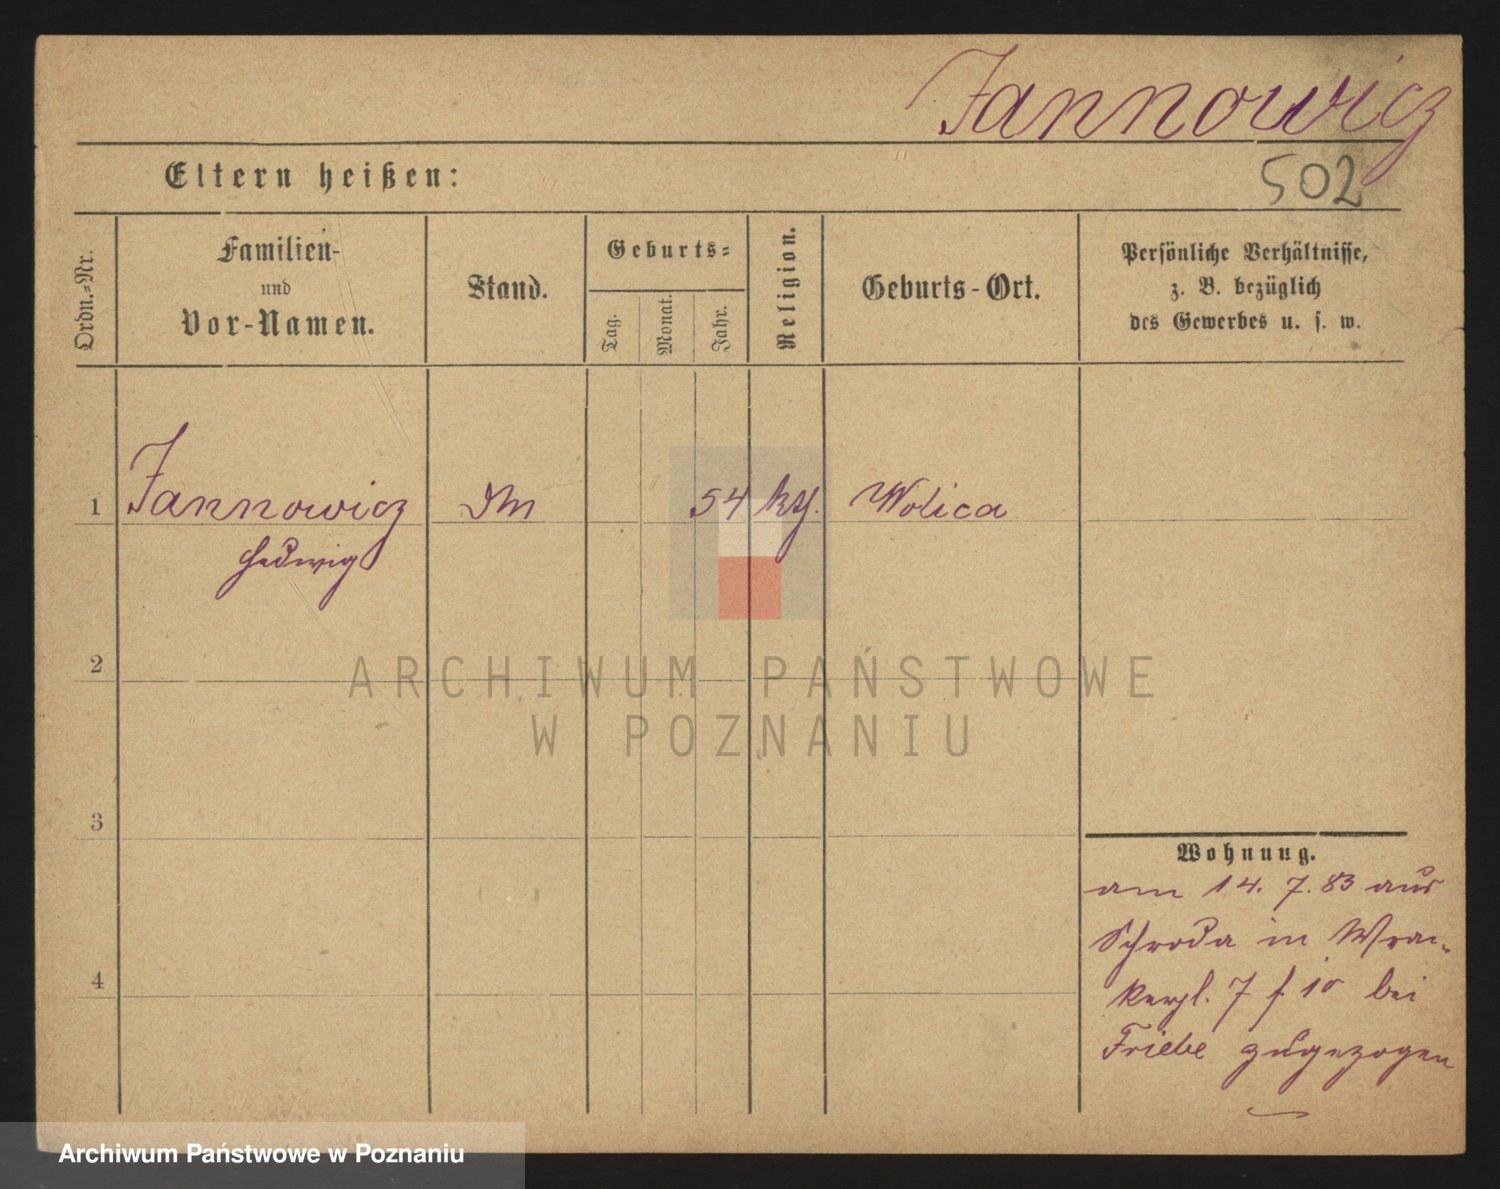 Jannowicz
502
Eltern heißen:
Ordn.-Nr.
Familien-
und
Vor-Namen.
Stand.
Geburts-
Tag.
Monat.
Jahr.
Religion.
Geburts-Ort.
Persönliche Verhältnisse,
z. B. bezüglich
des Gewerbes u. s. w.
1 Jannowicz 54 kth. Wolica
Hedwig
2
3
4
Wohnung.
am 14. 7. 83 aus
Schroda in
7 f 10 bei
Friebe zugezogen
ARCHIWUM PAŃSTWOWE
W POZNANIU
Archiwum Państwowe w Poznaniu